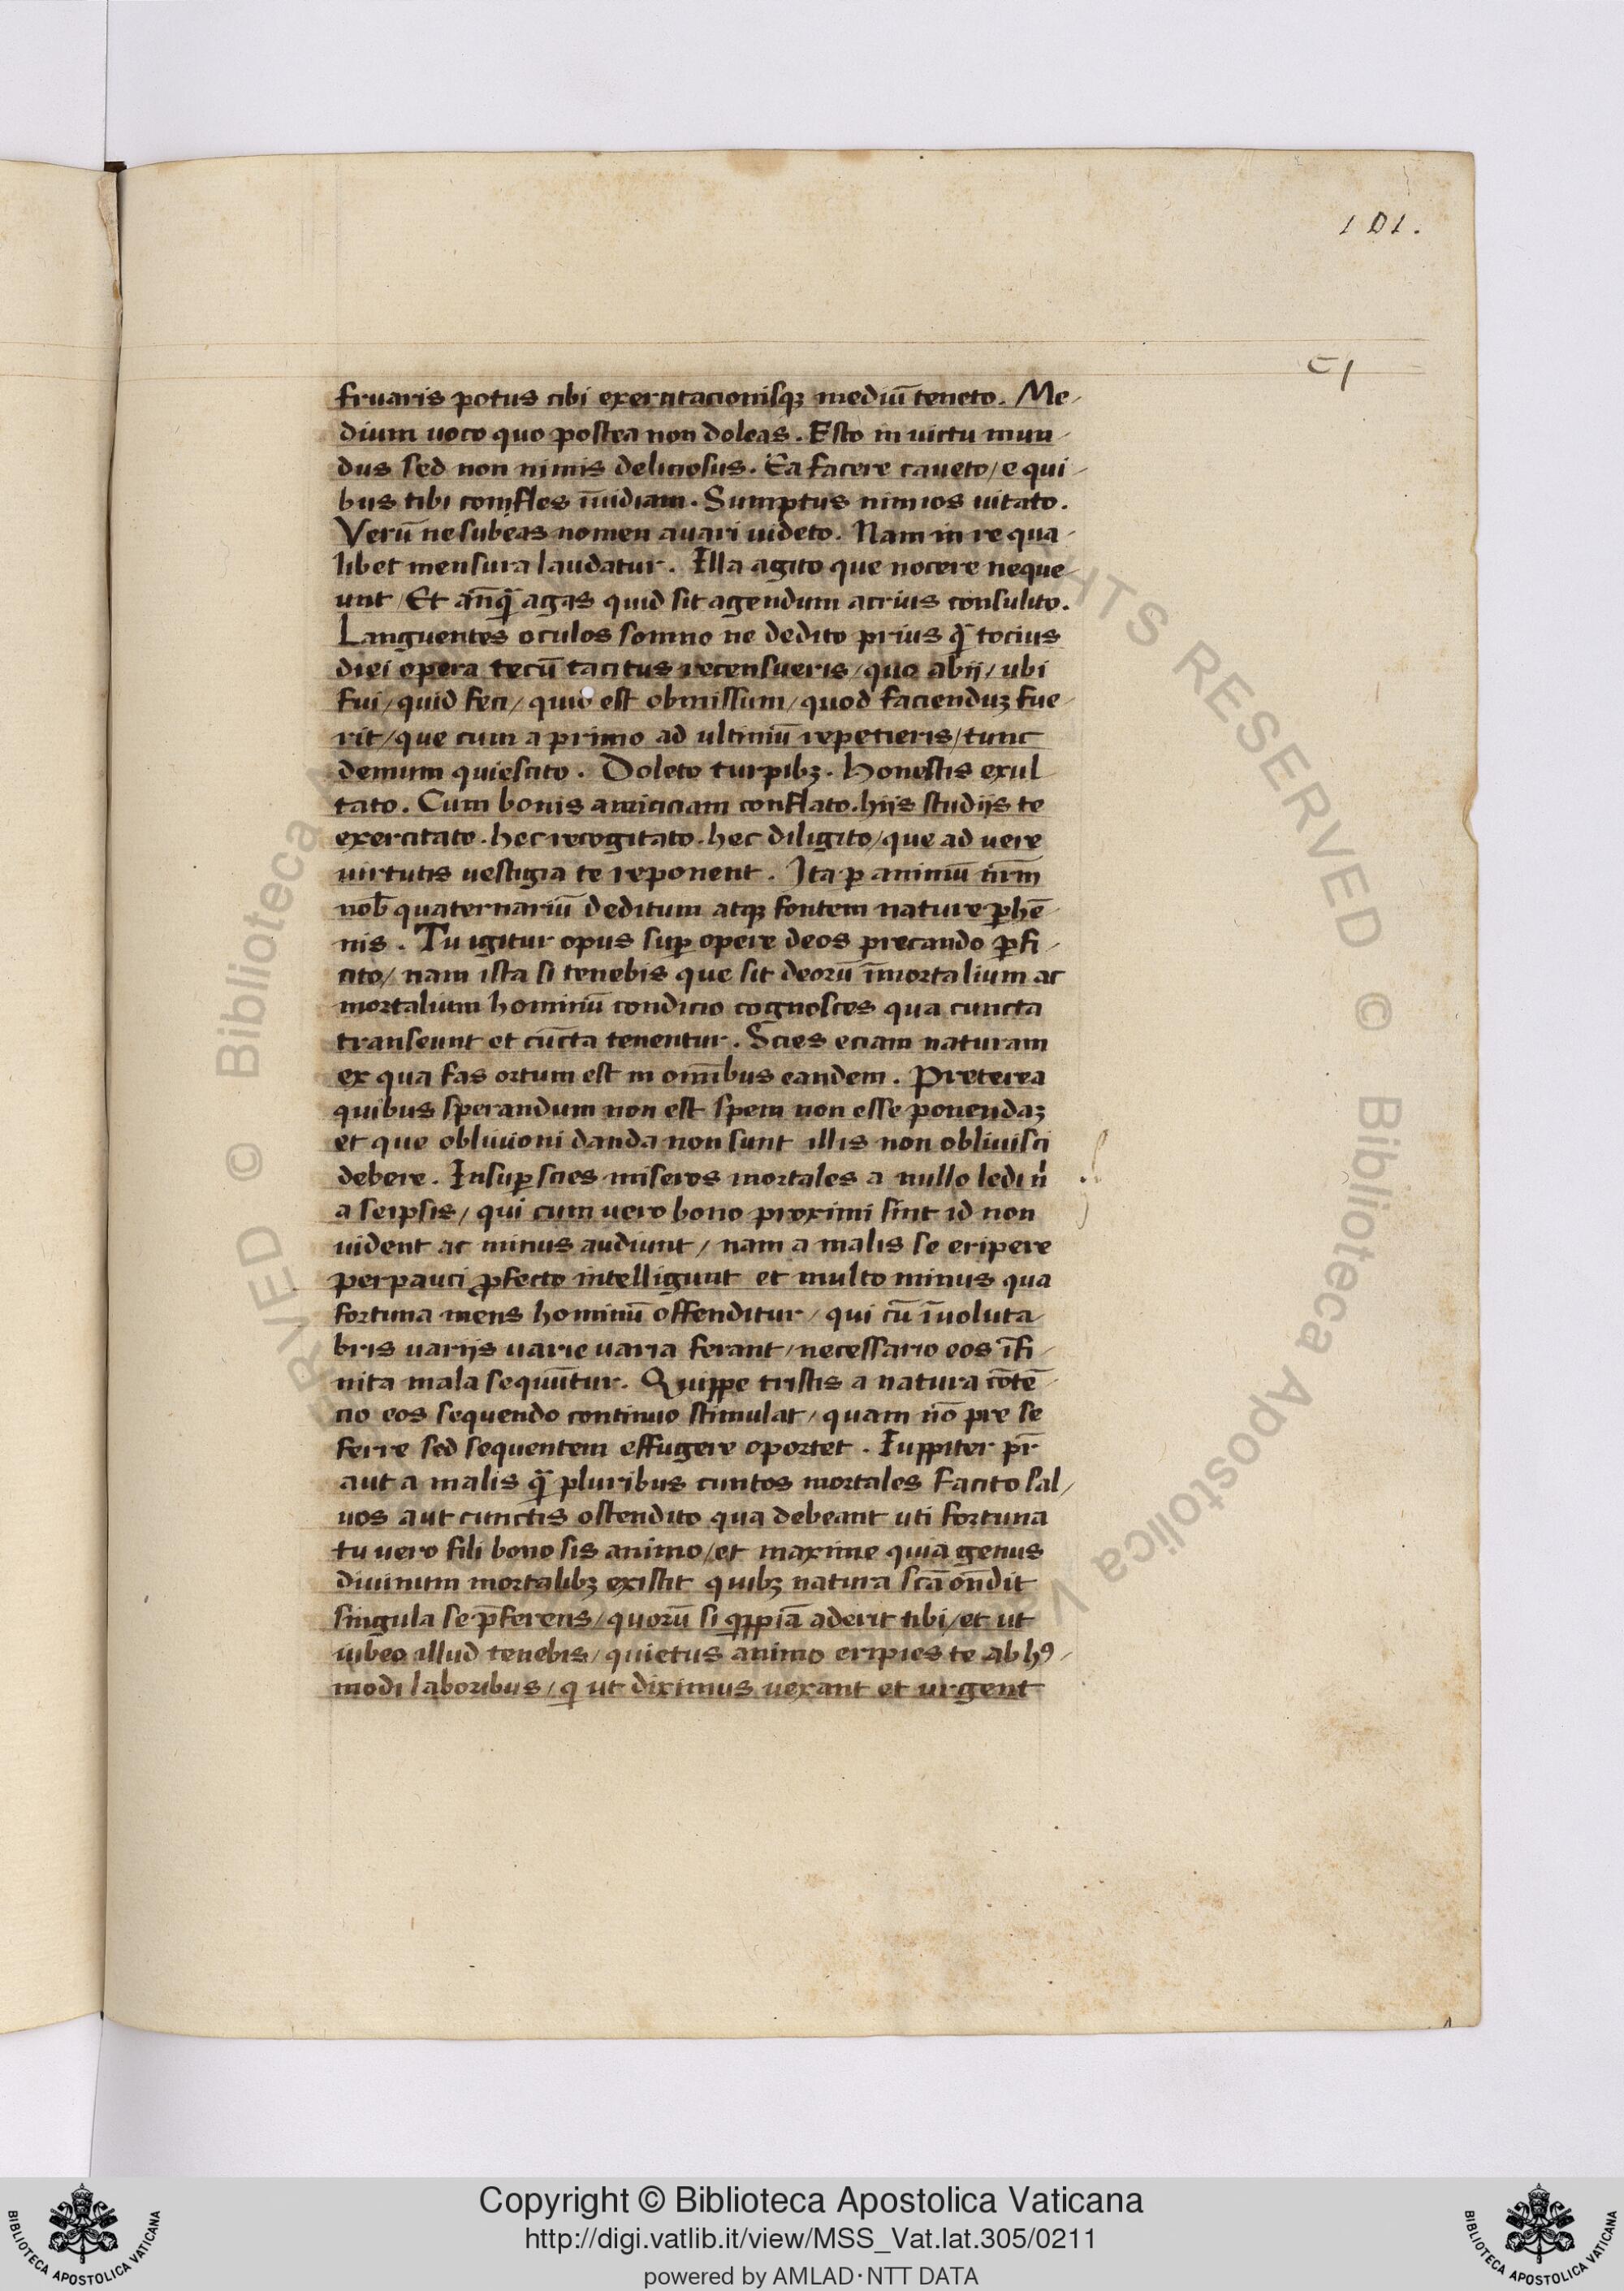 101.
C1
fruaris potus cibi exercitacionisqȝ mediū teneto. Me/
dium uoco quo postea non doleas. Esto in uictu mun/
dus sed non nimis deliciosus. Ea facere caueto/ e qui/
bus tibi comfles īuidiam. Sumptus nimios uitato.
Verū ne subeas nomen auari uideto. Nam in re qua/
libet mensura laudatur. Illa agito que nocere neque/
unt/ Et anq̄ agas quid sit agendum acrius consulito.
Languentes oculos somno ne dedito prius q̄ tocius
diei opera tecū tacitus recensueris/ quo abij/ ubi
fui/ quid feci/ quid est obmissum/ quod facienduȝ fue/
rit/ que cum a primo ad ultimū repetieris/ tunc
demum quiescito. Doleto turpibȝ. Honestis exul/
tato. Cum bonis amiciciam conflato. hijs studijs te
exercitato. hec recogitato. hec diligito/ que ad uere
uirtutis uestigia te reponent. Ita ꝑ animū nr̄m
nob̄ quaternariū deditum atqȝ fontem nature ꝑhē/
nis. Tu igitur opus suꝑ opere deos precando ꝑfi/
cito/ nam ista si tenebis que sit deorū īmortalium ac
mortalium hominū condicio cognosces qua cuncta
transeunt et cūcta tenentur. Scies eciam naturam
ex qua fas ortum est in om̄ibus eandem. Preterea
quibus sperandum non est spem non esse ponendaȝ
et que obliuioni danda non sunt illis non obliuisci
debere. Insuꝑ scies miseros mortales a nullo ledi n̍
a seipsis/ qui cum uero bono proximi sint id non
uident ac minus audiunt/ nam a malis se eripere
perpauci ꝓfecto intelligunt et multo minus qua
fortuna mens hominū offenditur/ qui cū īuoluta/
bris uarijs uarie uaria ferant/ necessario eos īfi/
nita mala sequūtur. Quippe tristis a natura cōtē/
cio eos sequendo continuo stimulat/ quam nō pre se
ferre sed sequentem effugere oportet. Iuppiter pr̄
aut a malis q̄ pluribus cuntos mortales facito sal/
uos aut cunctis ostendito qua debeant uti fortuna
tu uero fili bono sis animo/ et maxime quia genus
diuinum mortalibȝ existit quibȝ natura scā on̄dit
singula se p̄ferens/ quorū si qͥppiā aderit tibi/ et ut
iubeo illud tenebis/ quietus animo eripies te ab hꝰ/
modi laboribus/ qͥ ut diximus uexant et urgent
© Biblioteca Apostolica Vaticana
RIGHTS RESERVED
Copyright © Biblioteca Apostolica Vaticana
http://digi.vatlib.it/view/MSS_Vat.lat.305/0211
powered by AMLAD·NTT DATA
BIBLIOTECA APOSTOLICA VATICANA
BIBLIOTECA APOSTOLICA VATICANA